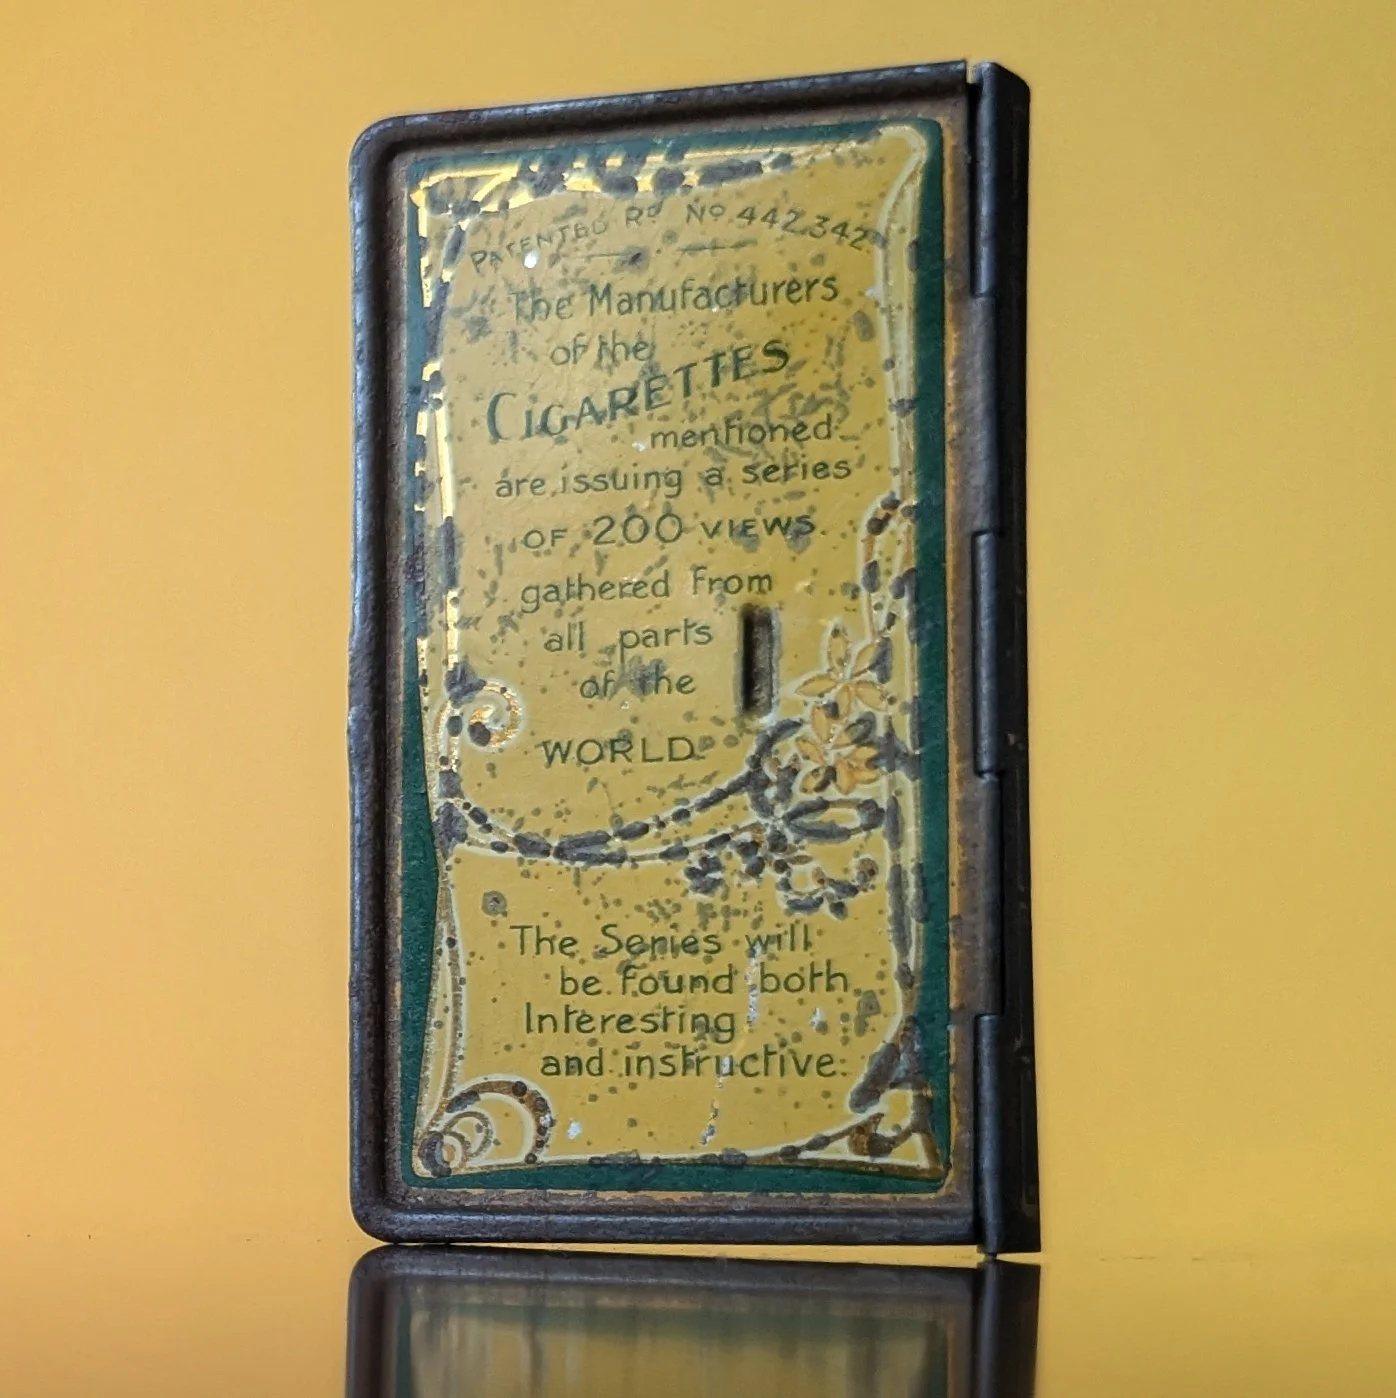 PATENTED Rᴰ Nº 442,342
The Manufacturers
of the
CIGARETTES
mentioned
are issuing a series
OF 200 VIEWS.
gathered from
all parts
of the
WORLD.
The Series will
be found both
Interesting
and instructive.